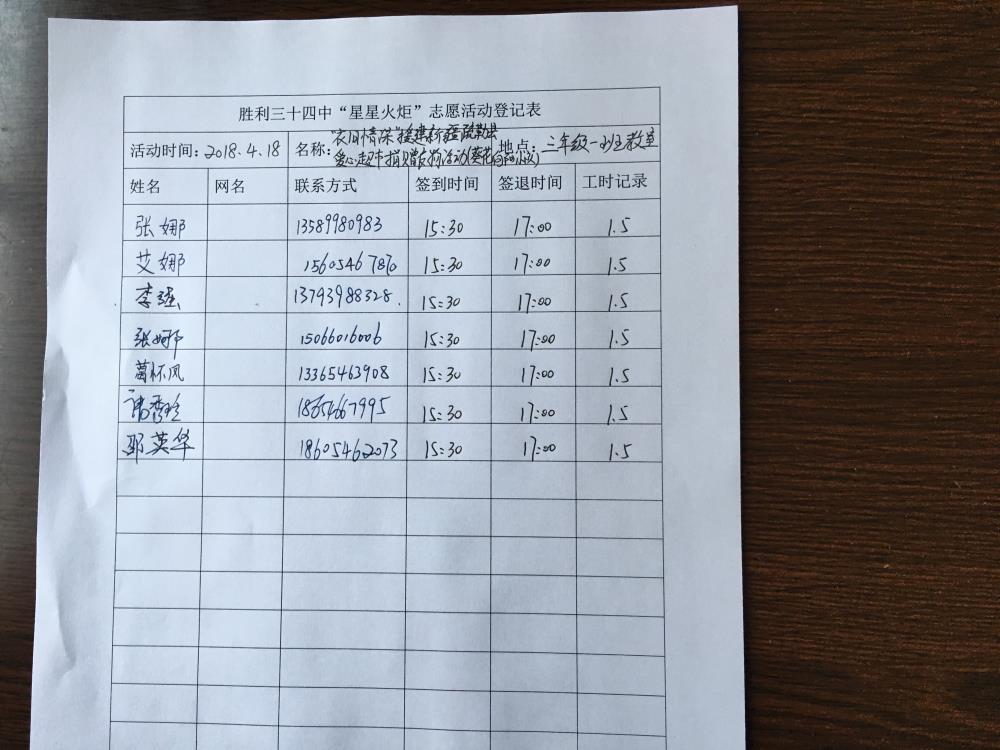 胜利三十四中“星星火炬”志愿活动登记表
活动时间：2018.4.18 名称：“衣旧情深”援建新疆疏勒县 地点：三年级一班教室
爱心超市捐赠衣物活动
姓名 网名 联系方式 签到时间 签退时间 工时记录
张娜 13589980983 15:30 17:00 1.5
艾娜 15605467870 15:30 17:00 1.5
李强 13793988328. 15:30 17:00 1.5
张娜 15066016006 15:30 17:00 1.5
葛怀凤 13365463908 15:30 17:00 1.5
秀珍 18654667995 15:30 17:00 1.5
邵英华 18605462073 15:30 17:00 1.5